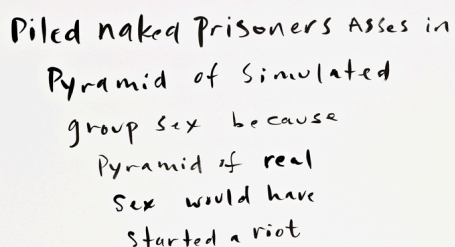 Piled naked Prisoners Asses in
Pyramid of simulated
group sex because
Pyramid of real
sex would have
started a riot